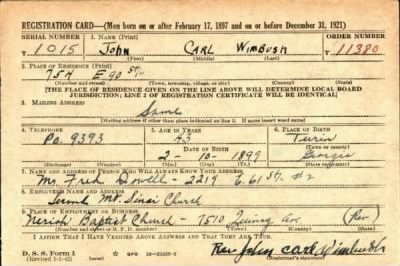 REGISTRATION CARD—(Men born on or after February 17, 1897 and on or before December 31, 1921)
SERIAL NUMBER 1. NAME (Print) ORDER NUMBER
T 1015 John Carl Wimbush T 11380
(First) (Middle) (Last)
2. PLACE OF RESIDENCE (Print)
754 E 90 St.
(Number and street) (Town, township, village, or city) (County) (State)
[THE PLACE OF RESIDENCE GIVEN ON THE LINE ABOVE WILL DETERMINE LOCAL BOARD
JURISDICTION; LINE 2 OF REGISTRATION CERTIFICATE WILL BE IDENTICAL]
3. MAILING ADDRESS
Same
[Mailing address if other than place indicated on line 2. If same insert word same]
4. TELEPHONE 5. AGE IN YEARS 6. PLACE OF BIRTH
Po. 9393 43 Turin
DATE OF BIRTH (Town or county)
2 - 10 - 1899 Georgia
(Exchange) (Number) (Mo.) (Day) (Yr.) (State or country)
7. NAME AND ADDRESS OF PERSON WHO WILL ALWAYS KNOW YOUR ADDRESS
2219 E. 61 St. #2
8. EMPLOYER'S NAME AND ADDRESS
Mt. Church
9. PLACE OF EMPLOYMENT OR BUSINESS
Baptist Church - 7510 Ave
(Number and street or R. F. D. number) (Town) (County) (State)
I AFFIRM THAT I HAVE VERIFIED ABOVE ANSWERS AND THAT THEY ARE TRUE.
Rev John Carl Wimbush
D. S. S. Form 1
(Revised 1-1-42) (over)
(Registrant's signature)